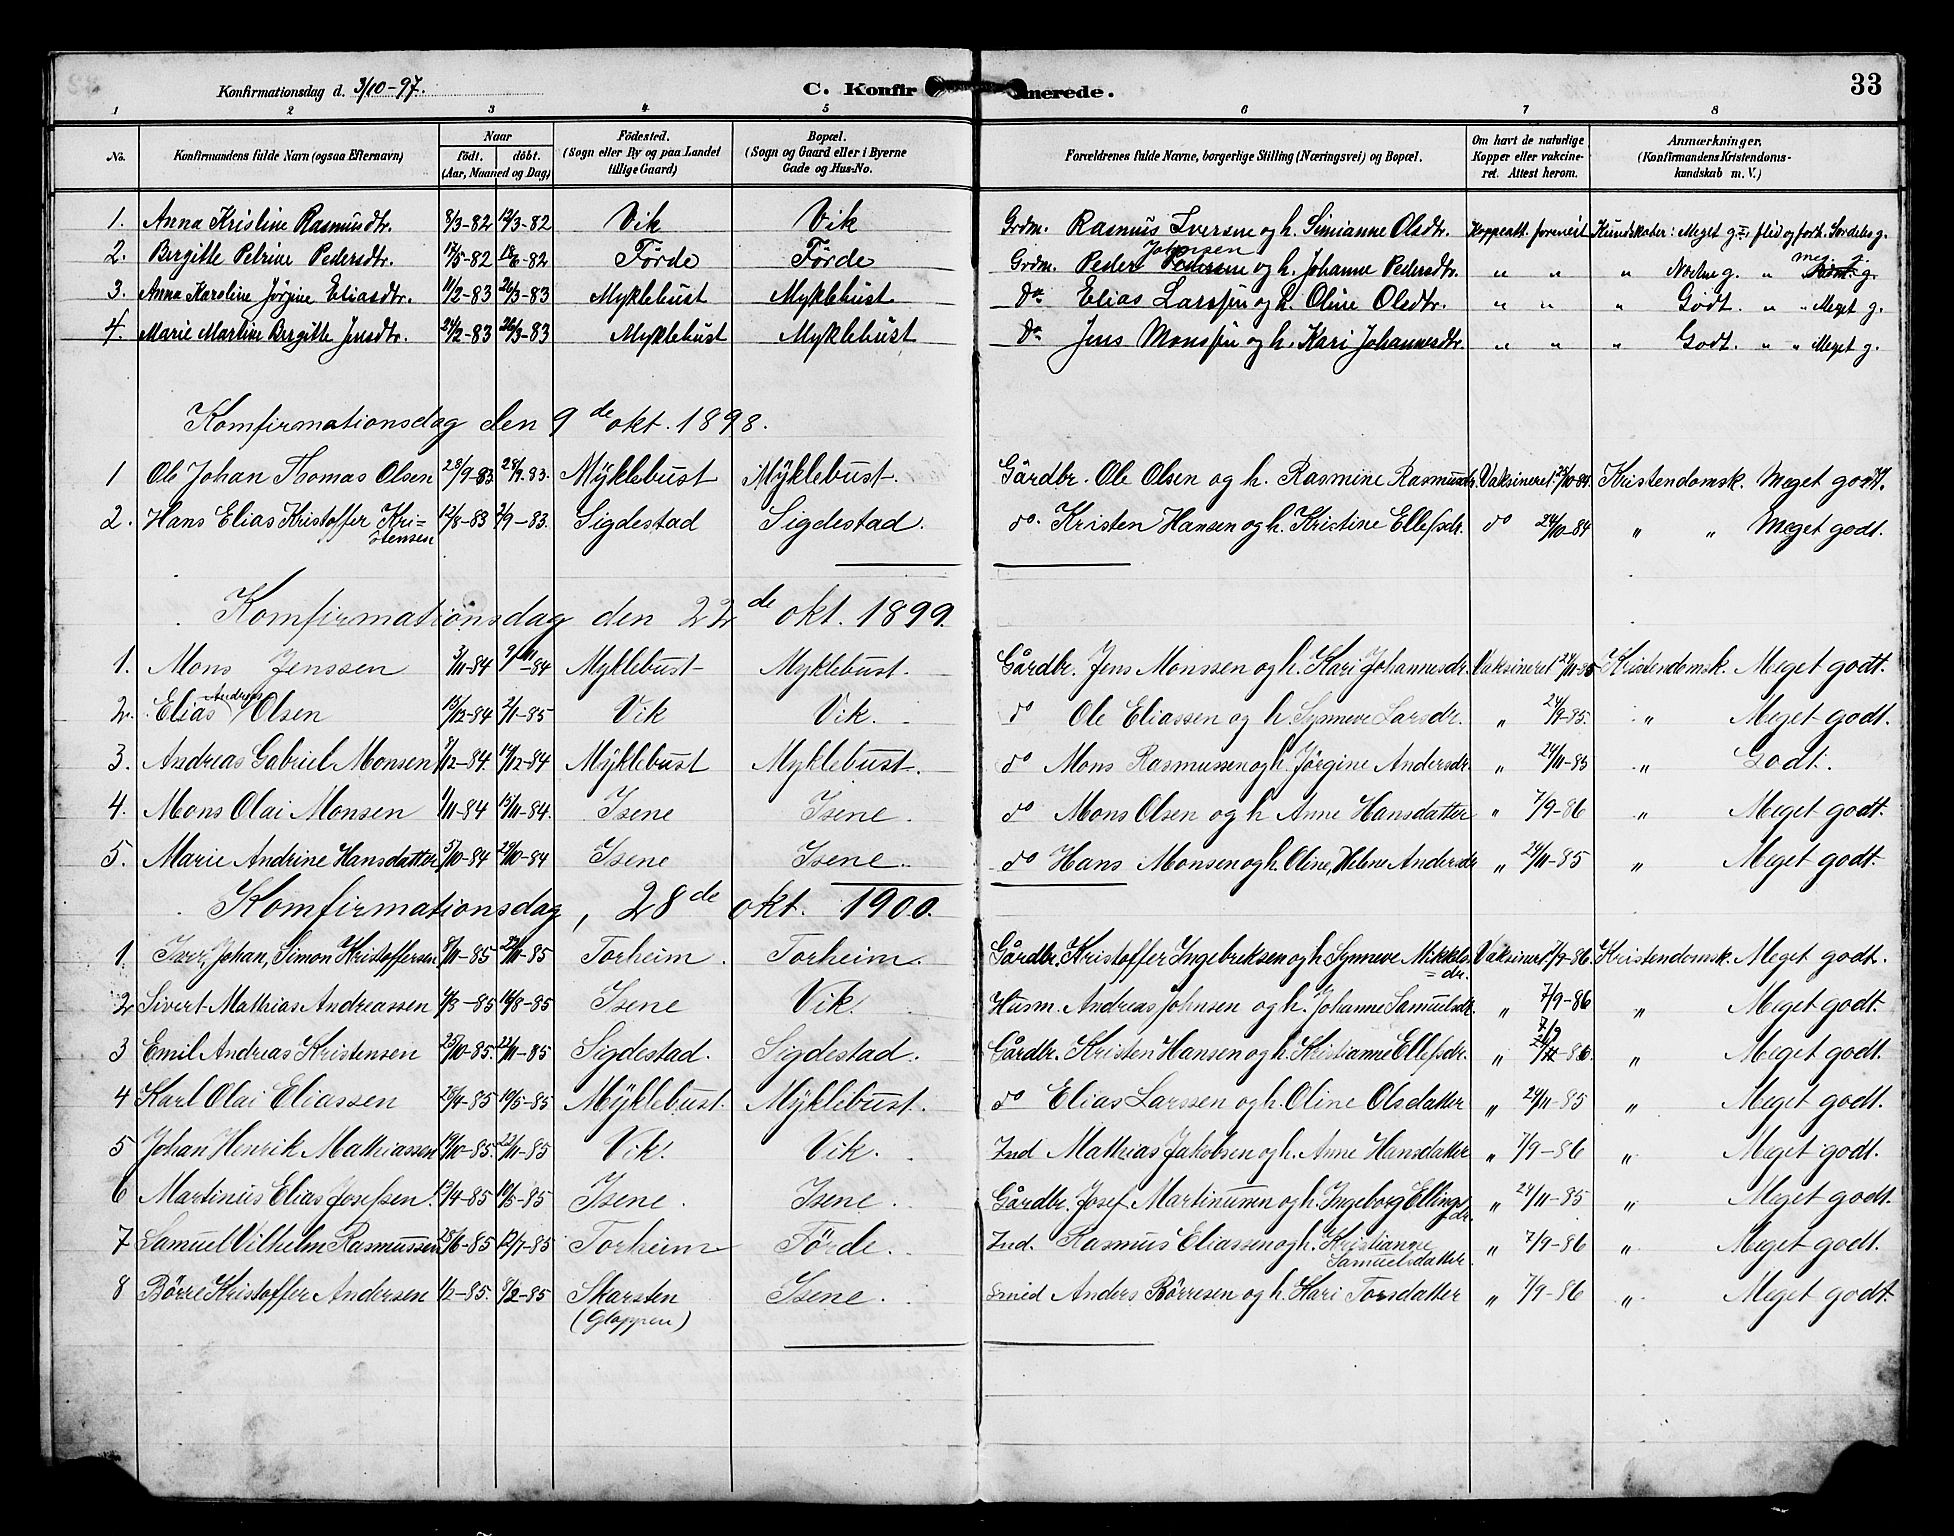 Konfirmationsdag d. 3/10-97. C. Konfirmerede. 33
1 2 3 4 5 6 7 8
No. Konfirmandens fulde Navn (ogsaa Efternavn) Naar födt. döbt. (Aar, Maaned og Dag) Födested. (Sogn eller By og paa Landet tillige Gaard) Bopæl. (Sogn og Gaard eller i Byerne Gade og Hus-No. Forældrenes fulde Navne, borgerlige Stilling (Næringsvei) og Bopæl. Om havt de naturlige Kopper eller vakcineret. Attest herom. Anmærkninger. (Konfirmandens Kristendomskundskab m. V.)
1. Anna Kristine Rasmusdtr. 8/3-82 12/3-82 Vik Vik Grdm. Rasmus Iversen og h. Simianne Olsdtr. Koppeatt. forevist Kundskaber: Meget g. flid og forh. Særdeles g.
2. Birgitte Petrine Pedersdtr. 17/5-82 18/6-82 Førde Førde Grdm. Peder Johnsen og h. Johanne Pedersdtr. " " " Nockne g. " meg. g.
3. Anna Karoline Jørgine Eliasdtr. 11/2-83 26/3-83 Myklebust Myklebust do Elias Larssen og h. Oline Olsdtr. " " " Godt. " " Meget g.
4. Marie Martine Birgitte Jensdtr. 24/2-83 26/3-83 Myklebust Myklebust do Jens Monssen og h. Kari Johannesdtr. " " " Godt. " " Meget g.
Komfirmationsdag den 9de okt. 1898.
1 Ole Johan Thomas Olsen 23/9-83 28/9.83. Mÿklebust Mÿklebust. Gårdbr. Ole Olsen og h. Rasmine Rasmusdr. Vaksineret 25/10-84. Kristendomsk. Meget godt.
2. Hans Elias Kristoffer Kristensen 12/8-83 2/9-83. Sigdestad Sigdestad. do. Kristen Hansen og h. Kristine Ellefsdr. do 24/10-84 " " Meget godt.
Komfirmationsdag den 22de okt. 1899.
1. Mons Jenssen 3/11-84 9/11-84 Myklebust Myklebust. Gårdbr. Jens Monssen og h. Kari Johannesdr. Vaksineret 24/11-85 Kristendomsk. Meget godt.
2. Elias Andreas Olsen 13/12-84 2/1-85 Vik Vik. do Ole Eliassen og h. Synneve Larsdr. " 24/9-85. " Meget godt.
3. Andreas Gabriel Monsen 8/12-84. 14/12-84 Mÿklebust Myklebust. do Mons Rasmussen og h. Jørgine Andersdr. " 24/11-85 " Godt.
4. Mons Olai Monsen 1/11-84 15/11-84. Isene Isene. do Mons Olsen og h Anne Hansdatter " 7/9-86 " Meget godt.
5. Marie Andrine Hansdatter 5/10-84 29/10-84 Isene Isene. do Hans Monsen og h. Oline, Helene Andersdr " 24/11-85 " Meget godt.
Komfirmationsdag, 28de okt. 1900.
1. Iver, Johan, Simon Kristoffersen 8/11-85 22/11-85 Torheim. Torheim. Gårdbr. Kristoffer Ingebreksen og h. Synneve Mikkelsdr. Vaksineret 7/9-86. Kristendomsk. Meget godt.
2 Sivert Mathias Andreassen 4/8-85 16/8-85 Isene Vik. Husm. Andreas Johnsen og h. Johanne Samuelsdr. " 7/9-86 " Meget godt.
3 Emil Andreas Kristensen 25/10-85. 22/11-85 Sigdestad. Sigdestad. Gårdbr. Kristen Hansen og h. Kristianne Ellefsdr. " 7/9-86. " Meget godt.
4 Karl Olai Eliassen 25/4-85 10/5-85 Mÿklebust. Mÿklebust. do Elias Larssen og h. Oline Olsdatter " 24/11-85 " Meget godt.
5 Johan Henrik Mathiassen 14/10-85. 22/11-85 Vik. Vik. Ind Mathias Jakobsen og h. Anne Hansdatter " 7/9-86 " Meget godt.
6 Martinus Elias Josefsen. 12/4-85 10/5-85 Isene. Isene. Gårdbr. Josef Martinussen og h. Ingeborg Ellingsdr. " 24/11-85 " Meget godt.
7 Samuel Vilhelm Rasmussen 25/6-85 12/7-85 Torheim Förde. Ind. Rasmus Eliassen og h. Kristianne Samuelsdatter. " 7/9-86 " Meget godt.
8 Börre Kristoffer Andersen 1/2-85. 8/2-85 Skarsten (Gloppen) Isene. Smed Anders Börresen og h. Kari Torsdatter " 7/9-86 " Meget godt.